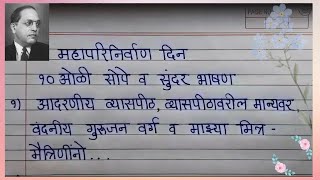 महापरिनिर्वाण दिन
१० ओळी सोपे व सुंदर भाषण
१) आदरणीय व्यासपीठ, व्यासपीठावरील मान्यवर,
वंदनीय गुरुजन वर्ग व माझ्या मित्र -
मैत्रिणींनो...